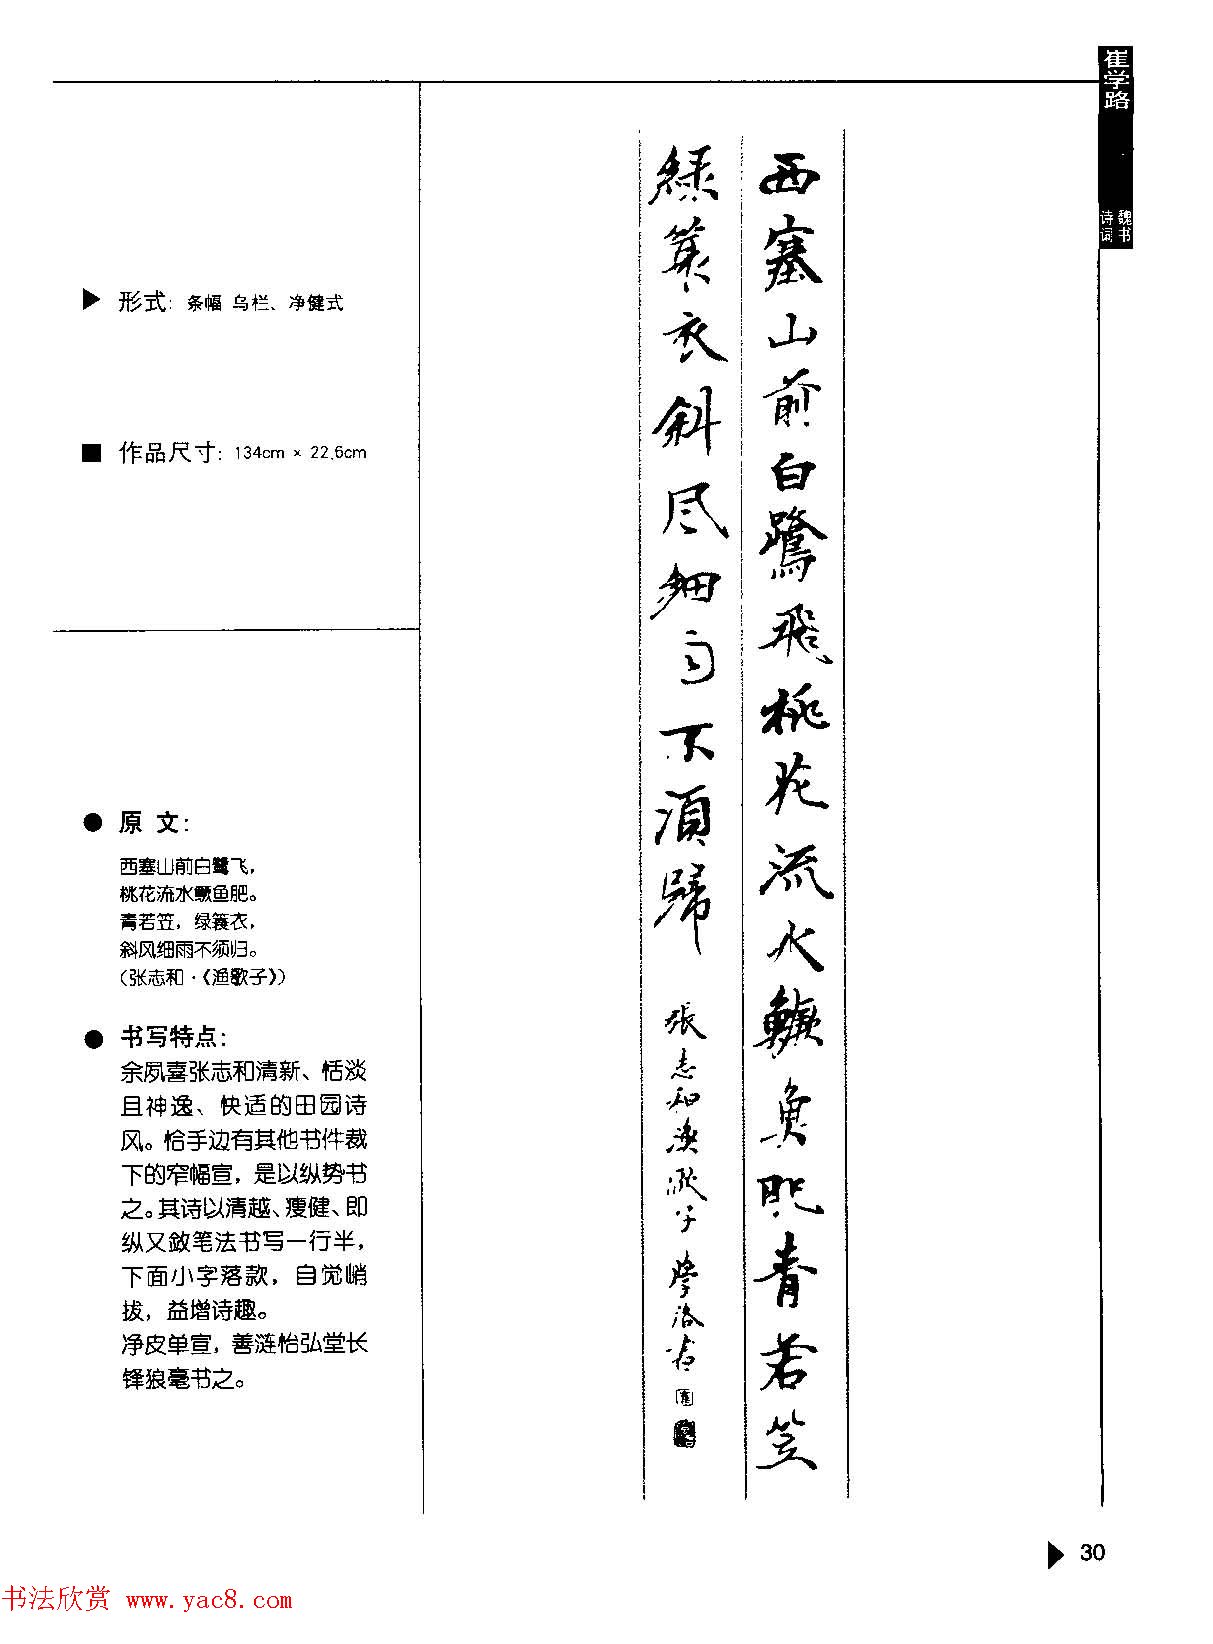 崔学路
魏书
诗词
▶ 形式: 条幅 乌栏、净健式
■ 作品尺寸: 134cm × 22.6cm
● 原 文:
西塞山前白鹭飞，
桃花流水鳜鱼肥。
青若笠，绿蓑衣，
斜风细雨不须归。
(张志和·《渔歌子》)
● 书写特点:
余夙喜张志和清新、恬淡
且神逸、快适的田园诗
风。恰手边有其他书件裁
下的窄幅宣，是以纵势书
之。其诗以清越、瘦健、即
纵又敛笔法书写一行半，
下面小字落款，自觉峭
拔，益增诗趣。
净皮单宣，善涟怡弘堂长
锋狼毫书之。
西塞山前白鷺飛桃花流水鱖魚肥青若笠
綠蓑衣斜風細雨不須歸 張志和漁歌子 學路書
▶ 30
书法欣赏 www.yac8.com